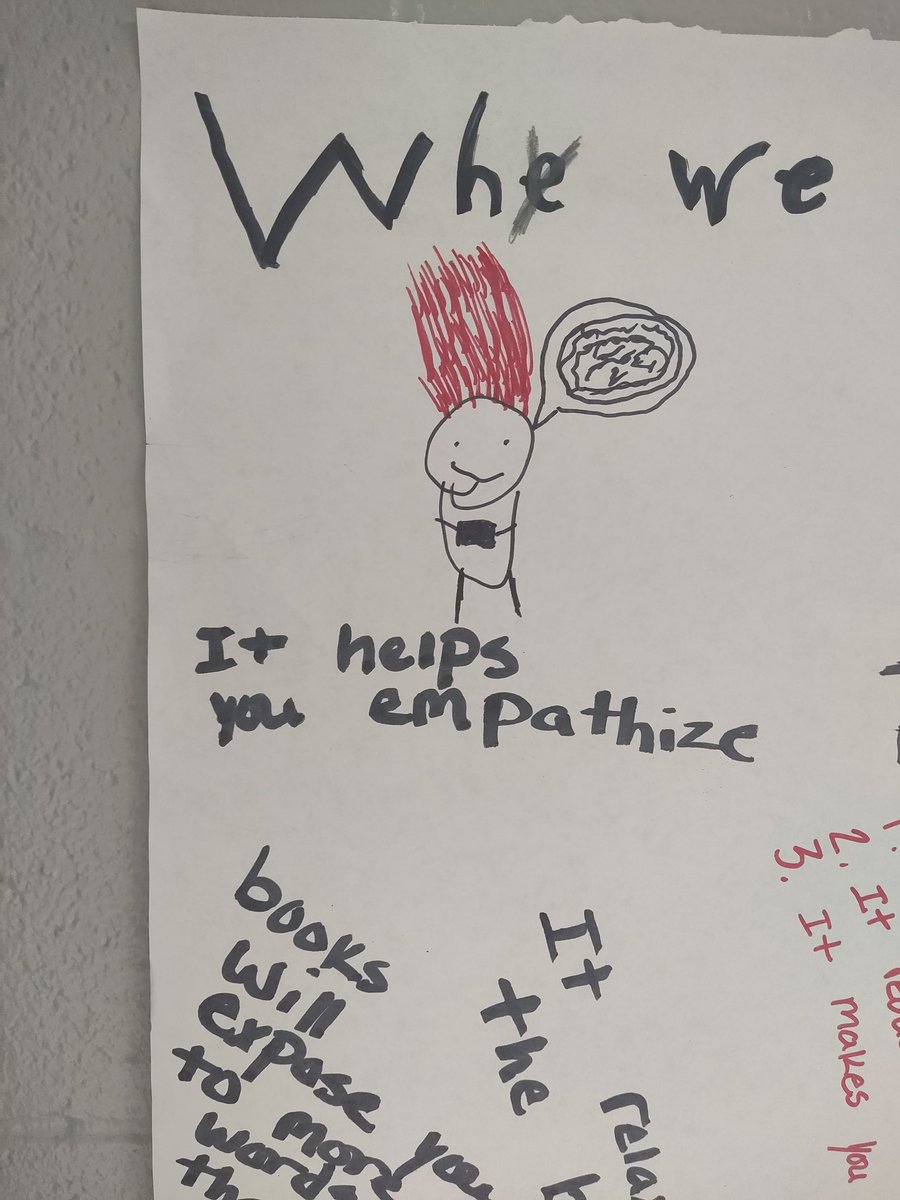 Why we
It helps
you empathize
books
will
expose you
to more
words
It
the
1.
2. It
3. It makes you